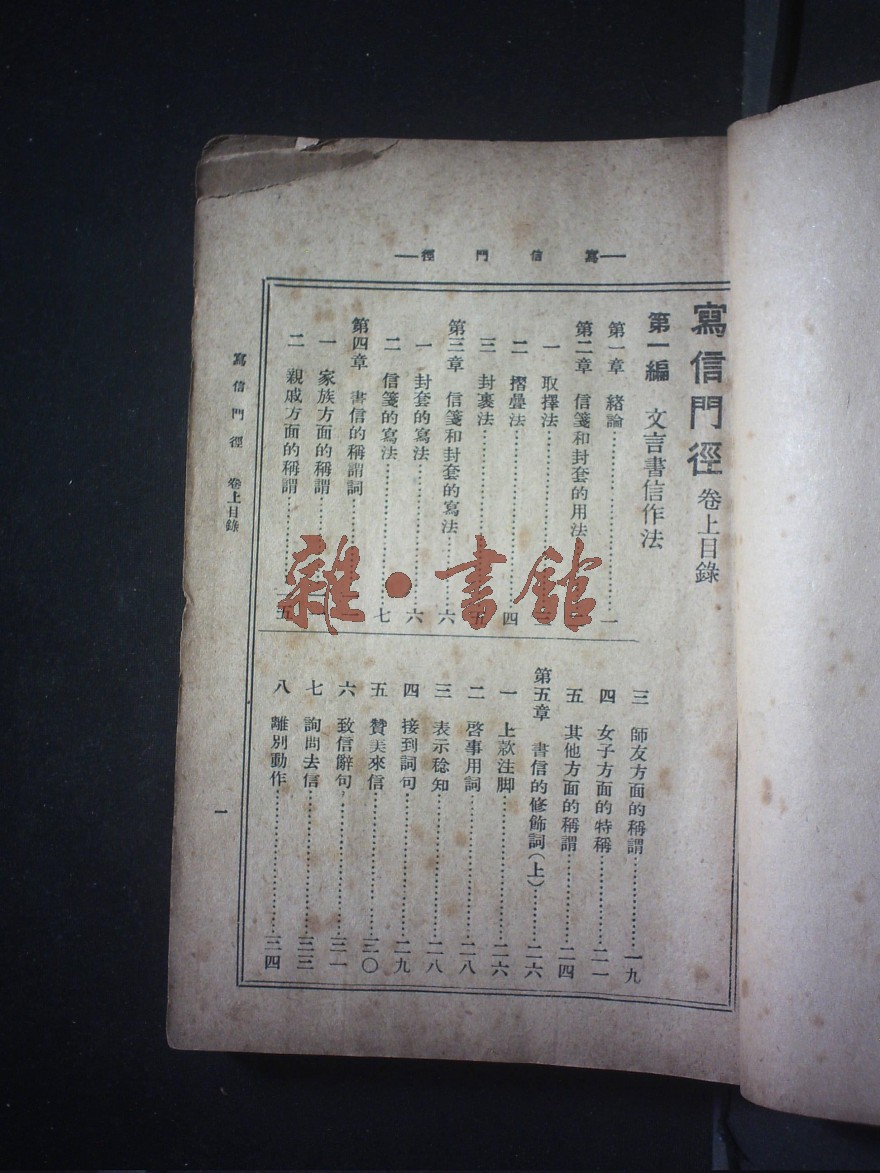 寫信門徑
寫信門徑 卷上目錄
第一編 文言書信作法
第一章 緒論……一
第二章 信箋和封套的用法
一 取擇法
二 摺疊法……四
三 封裹法
第三章 信箋和封套的寫法……六
一 封套的寫法……六
二 信箋的寫法……七
第四章 書信的稱謂詞
一 家族方面的稱謂
二 親戚方面的稱謂
三 師友方面的稱謂……一九
四 女子方面的特稱……二一
五 其他方面的稱謂……二四
第五章 書信的修飾詞(上)……二六
一 上款注脚……二六
二 啓事用詞……二八
三 表示稔知……二八
四 接到詞句……二九
五 贊美來信……三〇
六 致信辭句……三一
七 詢問去信……三三
八 離別動作……三四
寫信門徑 卷上目錄
一
雜·書館